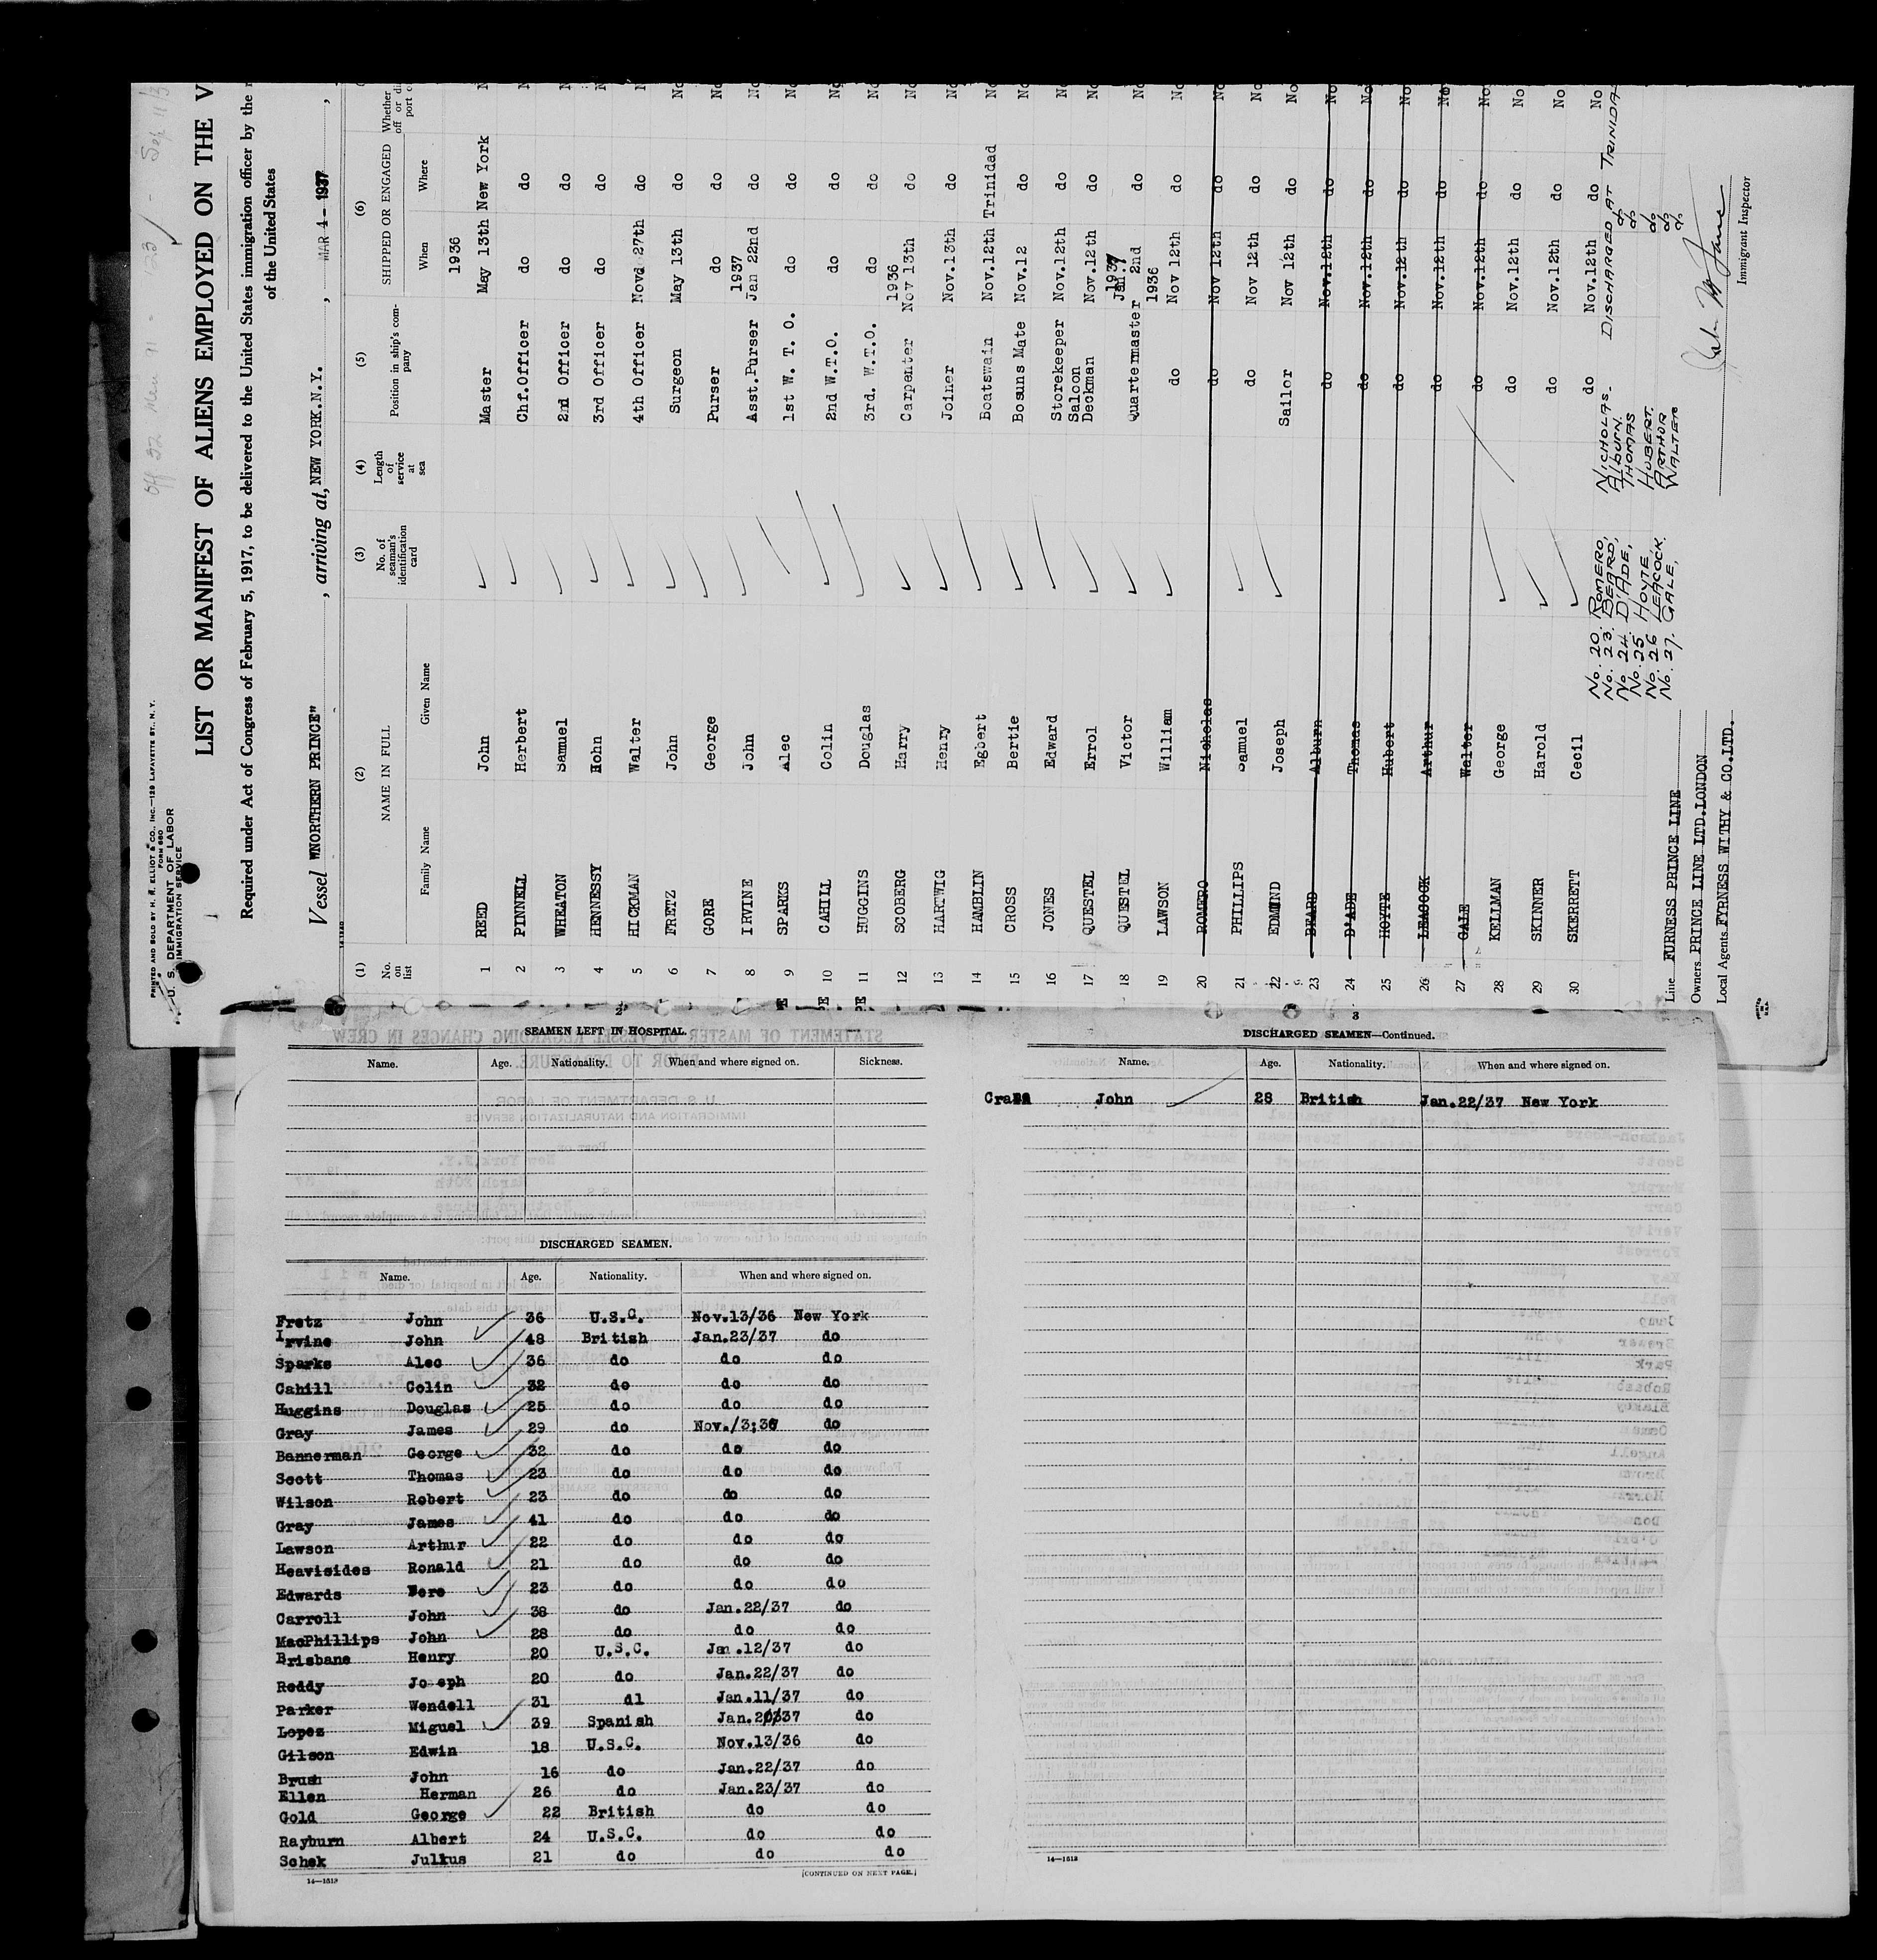 PRINTED AND SOLD BY H. R. ELLIOT & CO., INC.—129 LAFAYETTE ST., N.Y.
FORM 680
U. S. DEPARTMENT OF LABOR
IMMIGRATION SERVICE
LIST OR MANIFEST OF ALIENS EMPLOYED ON THE V
Required under Act of Congress of February 5, 1917, to be delivered to the United States immigration officer by the
of the United States
Vessel "NORTHERN PRINCE", arriving at, NEW YORK.N.Y., MAR 1 - 1937,
(1) (2) (3) (4) (5) (6)
No. on list NAME IN FULL No. of seaman's identification card Length of service at sea Position in ship's company SHIPPED OR ENGAGED Whether
Family Name Given Name When Where
1936
1 REED John Master May 13th New York
2 PINNELL Herbert Chf.Officer do do
3 WHEATON Samuel 2nd Officer do do
4 HENNESSY Hohn 3rd Officer do do
5 HICKMAN Walter 4th Officer Nov 27th do
6 FRETZ John Surgeon May 13th do No
7 GORE George Purser do do No
1937
8 IRVINE John Asst.Purser Jan 22nd do No
9 SPARKS Alec 1st W. T. O. do do No
10 CAHILL Colin 2nd W.T.O. do do No
11 HUGGINS Douglas 3rd. W.T.O. do do No
1936
12 SCOBERG Harry Carpenter Nov 13th do No
13 HARTWIG Henry Joiner Nov.13th do No
14 HAMBLIN Egbert Boatswain Nov.12th Trinidad No
15 CROSS Bertie Bosuns Mate Nov.12 do No
16 JONES Edward Storekeeper Nov.12th do No
17 QUESTEL Errol Saloon Deckman Nov.12th do No
1937
18 QUESTEL Victor Quartermaster Jan. 2nd do No
1936
19 LAWSON William do Nov 12th do No
20 ROMERO Nicholas do Nov 12th do No
21 PHILLIPS Samuel do Nov 12th do No
22 EDMUND Joseph Sailor Nov 12th do No
23 BEARD Alburn do Nov.12th do No
24 D'ADE Thomas do Nov.12th do No
25 HOYTE Hubert do Nov.12th do No
26 LEACOCK Arthur do Nov.12th do No
27 GALE Walter do Nov.12th do No
28 KELLMAN George do Nov.12th do No
29 SKINNER Harold do Nov.12th do No
30 SKERRETT Cecil do Nov.12th do No
No. 20. ROMERO, NICHOLAS- DISCHARGED AT TRINIDA
No. 23. BEARD, Alburn. do
No 24 D'ADE, THOMAS do
No. 25. HOYTE HUBERT. do
No 26 LEACOCK ARTHUR do
No. 27. GALE, WALTER do
Line FURNESS PRINCE LINE
Owners PRINCE LINE LTD.LONDON
Local Agents FYRNESS WITHY & CO.LTD.
Immigrant Inspector
2
SEAMEN LEFT IN HOSPITAL.
Name. Age. Nationality. When and where signed on. Sickness.
DISCHARGED SEAMEN.
Name. Age. Nationality. When and where signed on.
Fretz John 36 U.S.C. Nov.13/36 New York
Irvine John 48 British Jan.23/37 do
Sparks Alec 36 do do do
Cahill Colin 32 do do do
Huggins Douglas 25 do do do
Gray James 29 do Nov./3;36 do
Bannerman George 32 do do do
Scott Thomas 23 do do do
Wilson Robert 23 do do do
Gray James 41 do do do
Lawson Arthur 22 do do do
Heavisides Ronald 21 do do do
Edwards Vere 23 do do do
Carroll John 38 do Jan.22/37 do
MacPhillips John 28 do do do
Brisbane Henry 20 U.S.C. Jan.12/37 do
Reddy Joseph 20 do Jan.22/37 do
Parker Wendell 31 dl Jan.11/37 do
Lopez Miguel 39 Spanish Jan. do
Gilson Edwin 18 U.S.C. Nov.13/36 do
Brush John 16 do Jan.22/37 do
Ellen Herman 26 do Jan.23/37 do
Gold George 22 British do do
Rayburn Albert 24 U.S.C. do do
Schek Julius 21 do do do
14—1513
[CONTINUED ON NEXT PAGE.]
3
DISCHARGED SEAMEN—Continued.
Name. Age. Nationality. When and where signed on.
John 28 British Jan.22/37 New York
14—1513